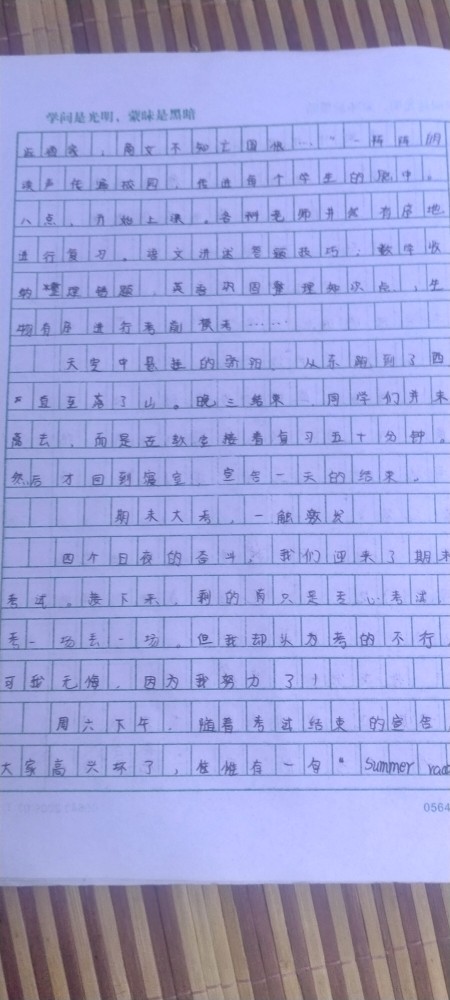 学问是光明，蒙昧是黑暗
商女不知亡国恨……”一阵阵朗
读声传遍校园，传进每个学生的耳中。
八点，开始上课。各科老师井然有序地
进行复习。语文讲述答题技巧；数学收
纳整理错题，英语巩固整理知识点，生
物有序进行考前模考……
天空中悬挂的骄阳，从东跑到了西
直至落了山。晚三结束，同学们并未
离去，而是在教室接着复习五十分钟。
然后才回到寝室，宣告一天的结束。
期末大考，一触激发
四个日夜的奋斗，我们迎来了期末
考试。接下来，剩的有只是专心考试，
考一场丢一场，但我却认为考的不行，
可我无悔，因为我努力了！
周六下午，随着考试结束的宣告，
大家高兴坏了，他她有一句“Summer
0564